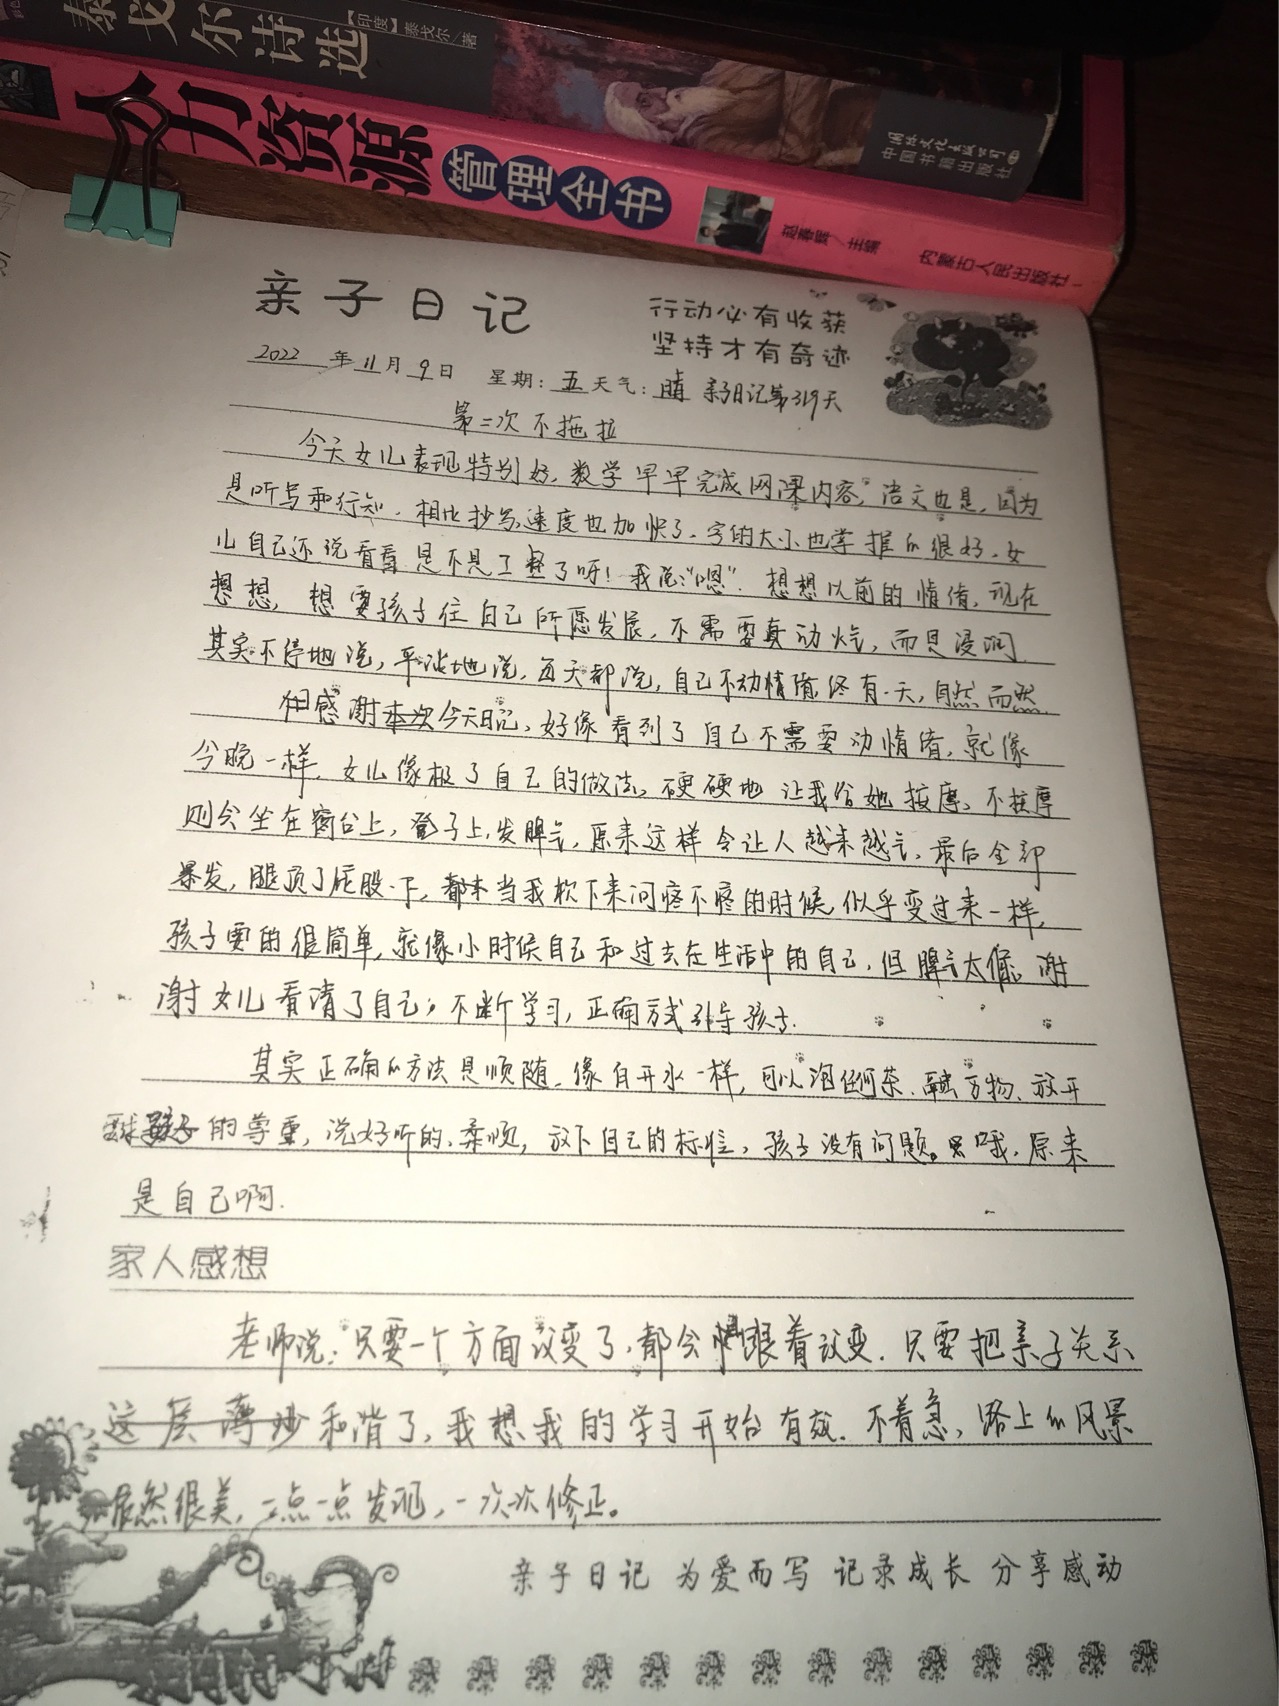 泰戈尔诗选
【印度】泰戈尔/著
国际文化出版公司
中国书籍出版社
人力资源管理全书
赵春辉/主编
内蒙古人民出版社
亲子日记
行动必有收获
坚持才有奇迹
2022年11月9日 星期：五 天气：晴 亲子日记第319天
第二次不拖拉
今天女儿表现特别好，数学早早完成网课内容，语文也是，因为
是听写和行知，相比抄写，速度也加快了，字的大小也掌握的很好，女
儿自己还说看看是不是工整了呀！我说："嗯"。想想以前的情绪，现在
想想，想要孩子往自己所愿发展，不需要真动火气，而是浸润
其实不停地说，平淡地说，每天都说，自己不动情绪，终有一天，自然而然
感谢本次今天日记，好像看到了自己不需要动情绪，就像
今晚一样，女儿像极了自己的做法，硬硬地让我给她按摩，不按摩
则会坐在窗台上，凳子上，发脾气，原来这样会让人越来越气，最后全部
暴发，腿顶了屁股一下，当我软下来问疼不疼的时候，似乎变过来一样，
孩子要的很简单，就像小时候自己和过去在生活中的自己，但脾气太倔。谢
谢女儿看清了自己；不断学习，正确方式引导孩子.
其实正确的方法是顺随，像白开水一样，可以泡任何茶，融万物，放开
孩子的尊重，说好听的，柔顺，放下自己的标准，孩子没有问题。哦，原来
是自己啊.
家人感想
老师说："只要一个方面改变了，都会跟着改变. 只要把亲子关系
这层薄纱和谐了，我想我的学习开始有效. 不着急，路上的风景
居然很美，一点一点发现，一次次修正。
亲子日记 为爱而写 记录成长 分享感动